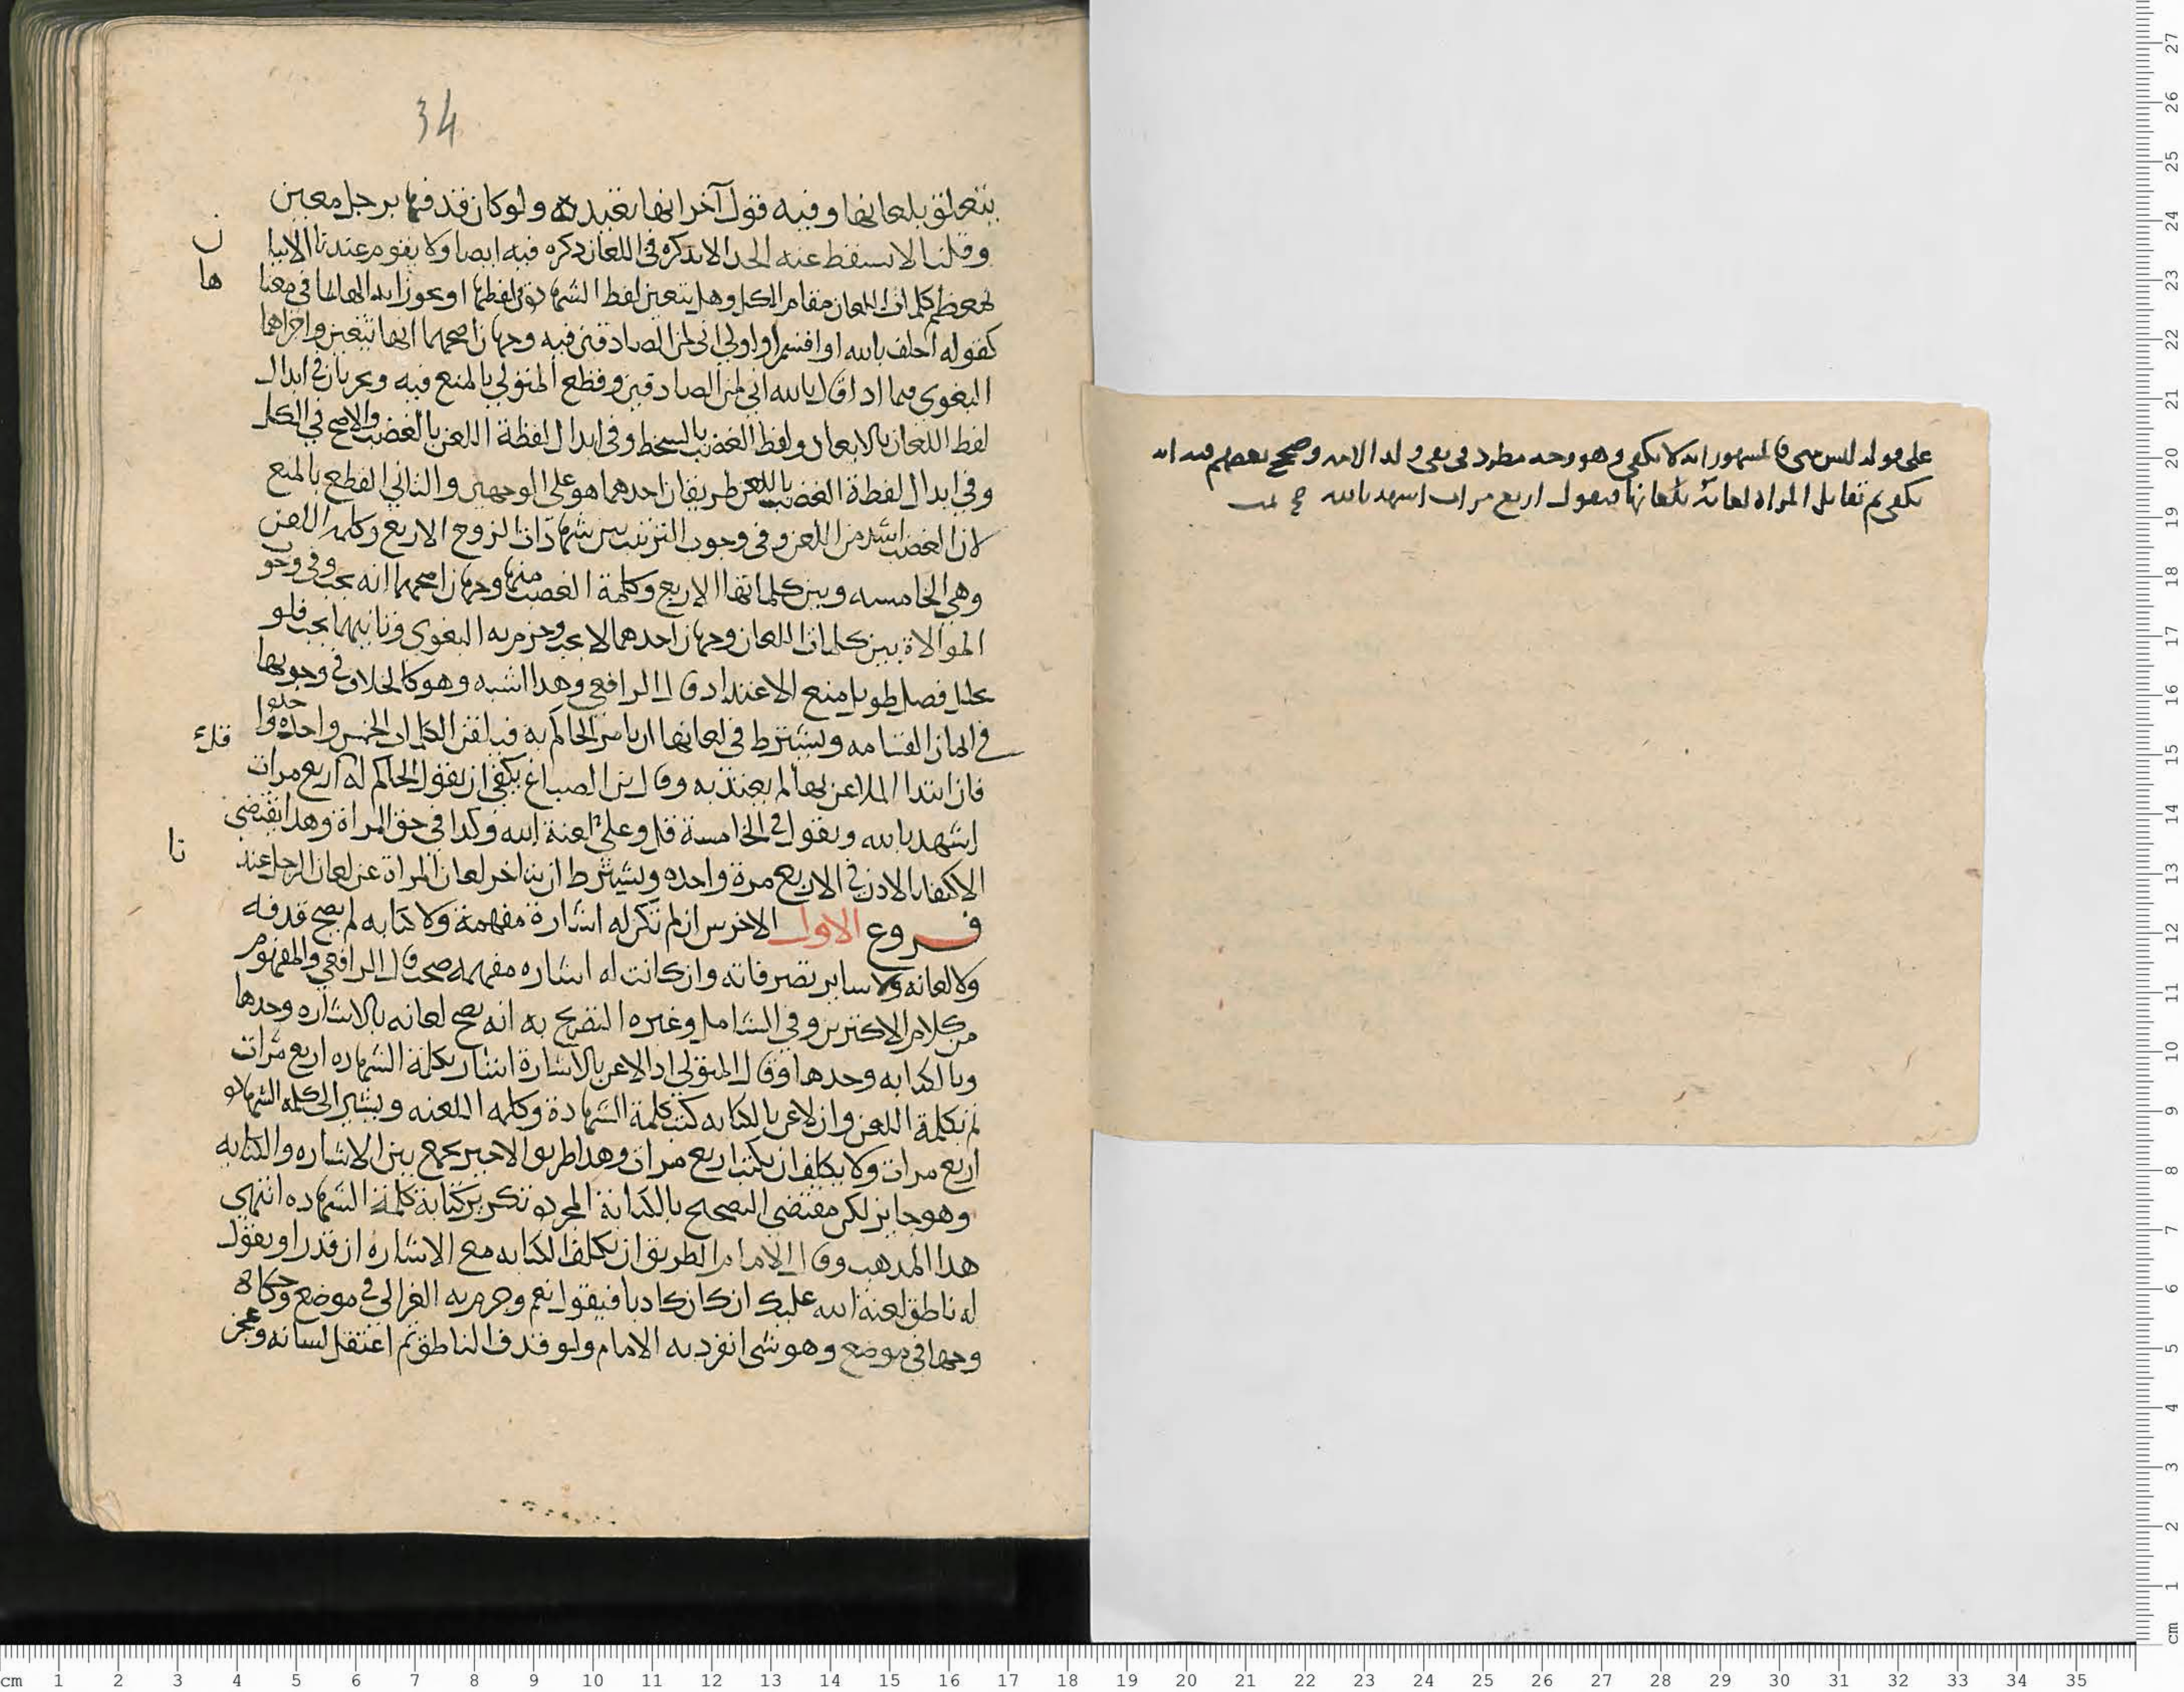 34
يتعلق بلعانها وفيه قول آخر انها تفيده ولو كان قذفها برجل معين
وقلنا لا يسقط عنه الحد الا بذكره في اللعان ذكره فيه ايضا ولا يقوم عندنا الاتيا
ن
بمعظم كلمات اللعان مقام الكل وهل يتعين لفظ الشهادة في لفظها او يجوز ابدالها بما في معنا
ها
كقوله احلف بالله او اقسم او اولي اني لمن الصادقين فيه وجهان اصحهما انها تتعين واجراهما
البغوي فيما اذا قال بالله اني لمن الصادقين وقطع المتولي بالمنع فيه ويجريان في ابدال
لفظ اللعان بالابعاد ولفظ الغضب بالسخط وفي ابدال لفظة اللعن بالغضب والاصح في الكل
وفي ابدال لفظة الغضب باللعن طريقان احدهما هو على الوجهين والثاني القطع بالمنع
لان الغضب اشد من اللعن وفي وجوب الترتيب بين شهادات الزوج الاربع وكلمة اللعن
وهي الخامسه وبين كلماتها الاربع وكلمة الغضب منها وجهان اصحهما انه يجب وفي وجوب
الموالاة بين كلمات اللعان وجهان احدهما لا يجب وجزم به البغوي وثانيهما يجب فلو
تخلل فصل طويل منع الاعتداد قال الرافعي وهذا اشبه وهو كالخلاف في وجوبها
في ايمان القسامه ويشترط في لعانها ان يامر الحاكم به فيلقن الكلمات الخمس واحده واحده
قلت
فان ابتدا الملاعن بها لم يعتد به وقال بن الصباغ يكفي ان يقول الحاكم له اربع مرات
اشهد بالله ويقول في الخامسة قل وعلي لعنة الله وكذا في حق المراة وهذا يقتضي
الاكتفا بالاذن في الاربع مرة واحده ويشترط ان يتاخر لعان المراة عن لعان الرجل عند
نا
فروع الاول الاخرس ان لم تكن له اشارة مفهمة ولا كتابه لم يصح قذفه
ولا لعانه ولا ساير تصرفاته وان كانت له اشاره مفهمه صحت قال الرافعي والمفهوم
من كلام الاكثرين وفي الشامل وغيره التصريح به انه يصح لعانه بالاشاره وحدها
وبالكتابه وحدها وقال المتولي اذا لاعن بالاشارة اشار بكلمة الشهاده اربع مرات
ثم بكلمة اللعن وان لاعن بالكتابه كتب كلمة الشهادة وكلمه اللعنه ويشير الى كلمه الشهادة
اربع مرات ولا يكلف ان يكتب اربع مرات وهذا طريق الاخير جمع بين الاشاره والكتابه
وهو جايز لكن مقتضى التصحيح بالكتابة المجردة تكرير كتابة كلمة الشهاده انتهى
هذا المذهب وقال الامام الطريق ان يكلف الكتابه مع الاشاره ان قدر او يقول
له ناطق لعنة الله عليك ان كان كاذبا فيقول نعم وجزم به الغزالي في موضع وحكاه
وجها في موضع وهو شي انفرد به الامام ولو قذف الناطق ثم اعتقل لسانه وعجز
على قوله ليس مني فالمشهور انه لا يكفي وهو وجه مطرد في نفي ولد الامه وصحح بعضهم فيه انه
يكفي ثم تقابل المراه لعانه بلعانها فيقول اربع مرات اشهد بالله